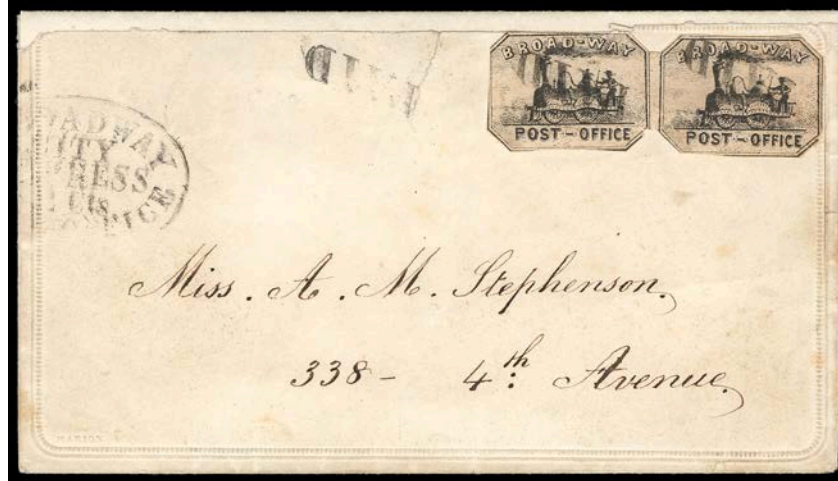 BROAD-WAY
POST-OFFICE
BROAD-WAY
POST-OFFICE
PAID
ADWAY
ITY
RESS
ICE
Miss. A. M. Stephenson.
338- 4th: Avenue,
MARION